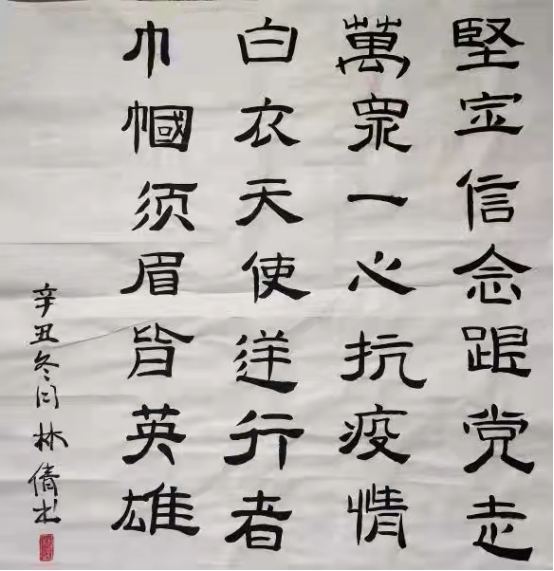 堅定信念跟党走
萬眾一心抗疫情
白衣天使逆行者
巾帼须眉皆英雄
辛丑冬月林倩书